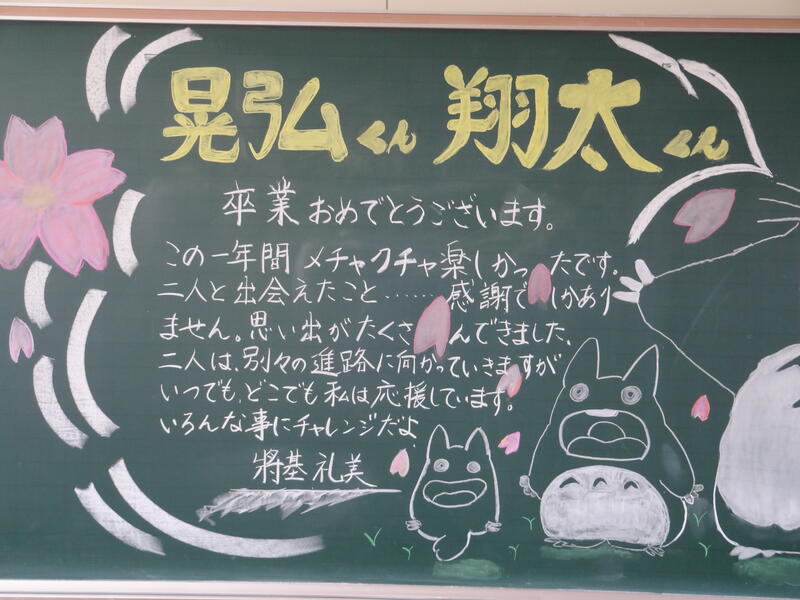 晃弘くん 翔太くん
卒業おめでとうございます。
この一年間 メチャクチャ楽しかったです。
二人と出会えたこと……感謝でしかあり
ません。思い出がたくさんできました、
二人は、別々の進路に向かっていきますが
いつでも、どこでも私は応援しています。
いろんな事にチャレンジだよ
將基礼美